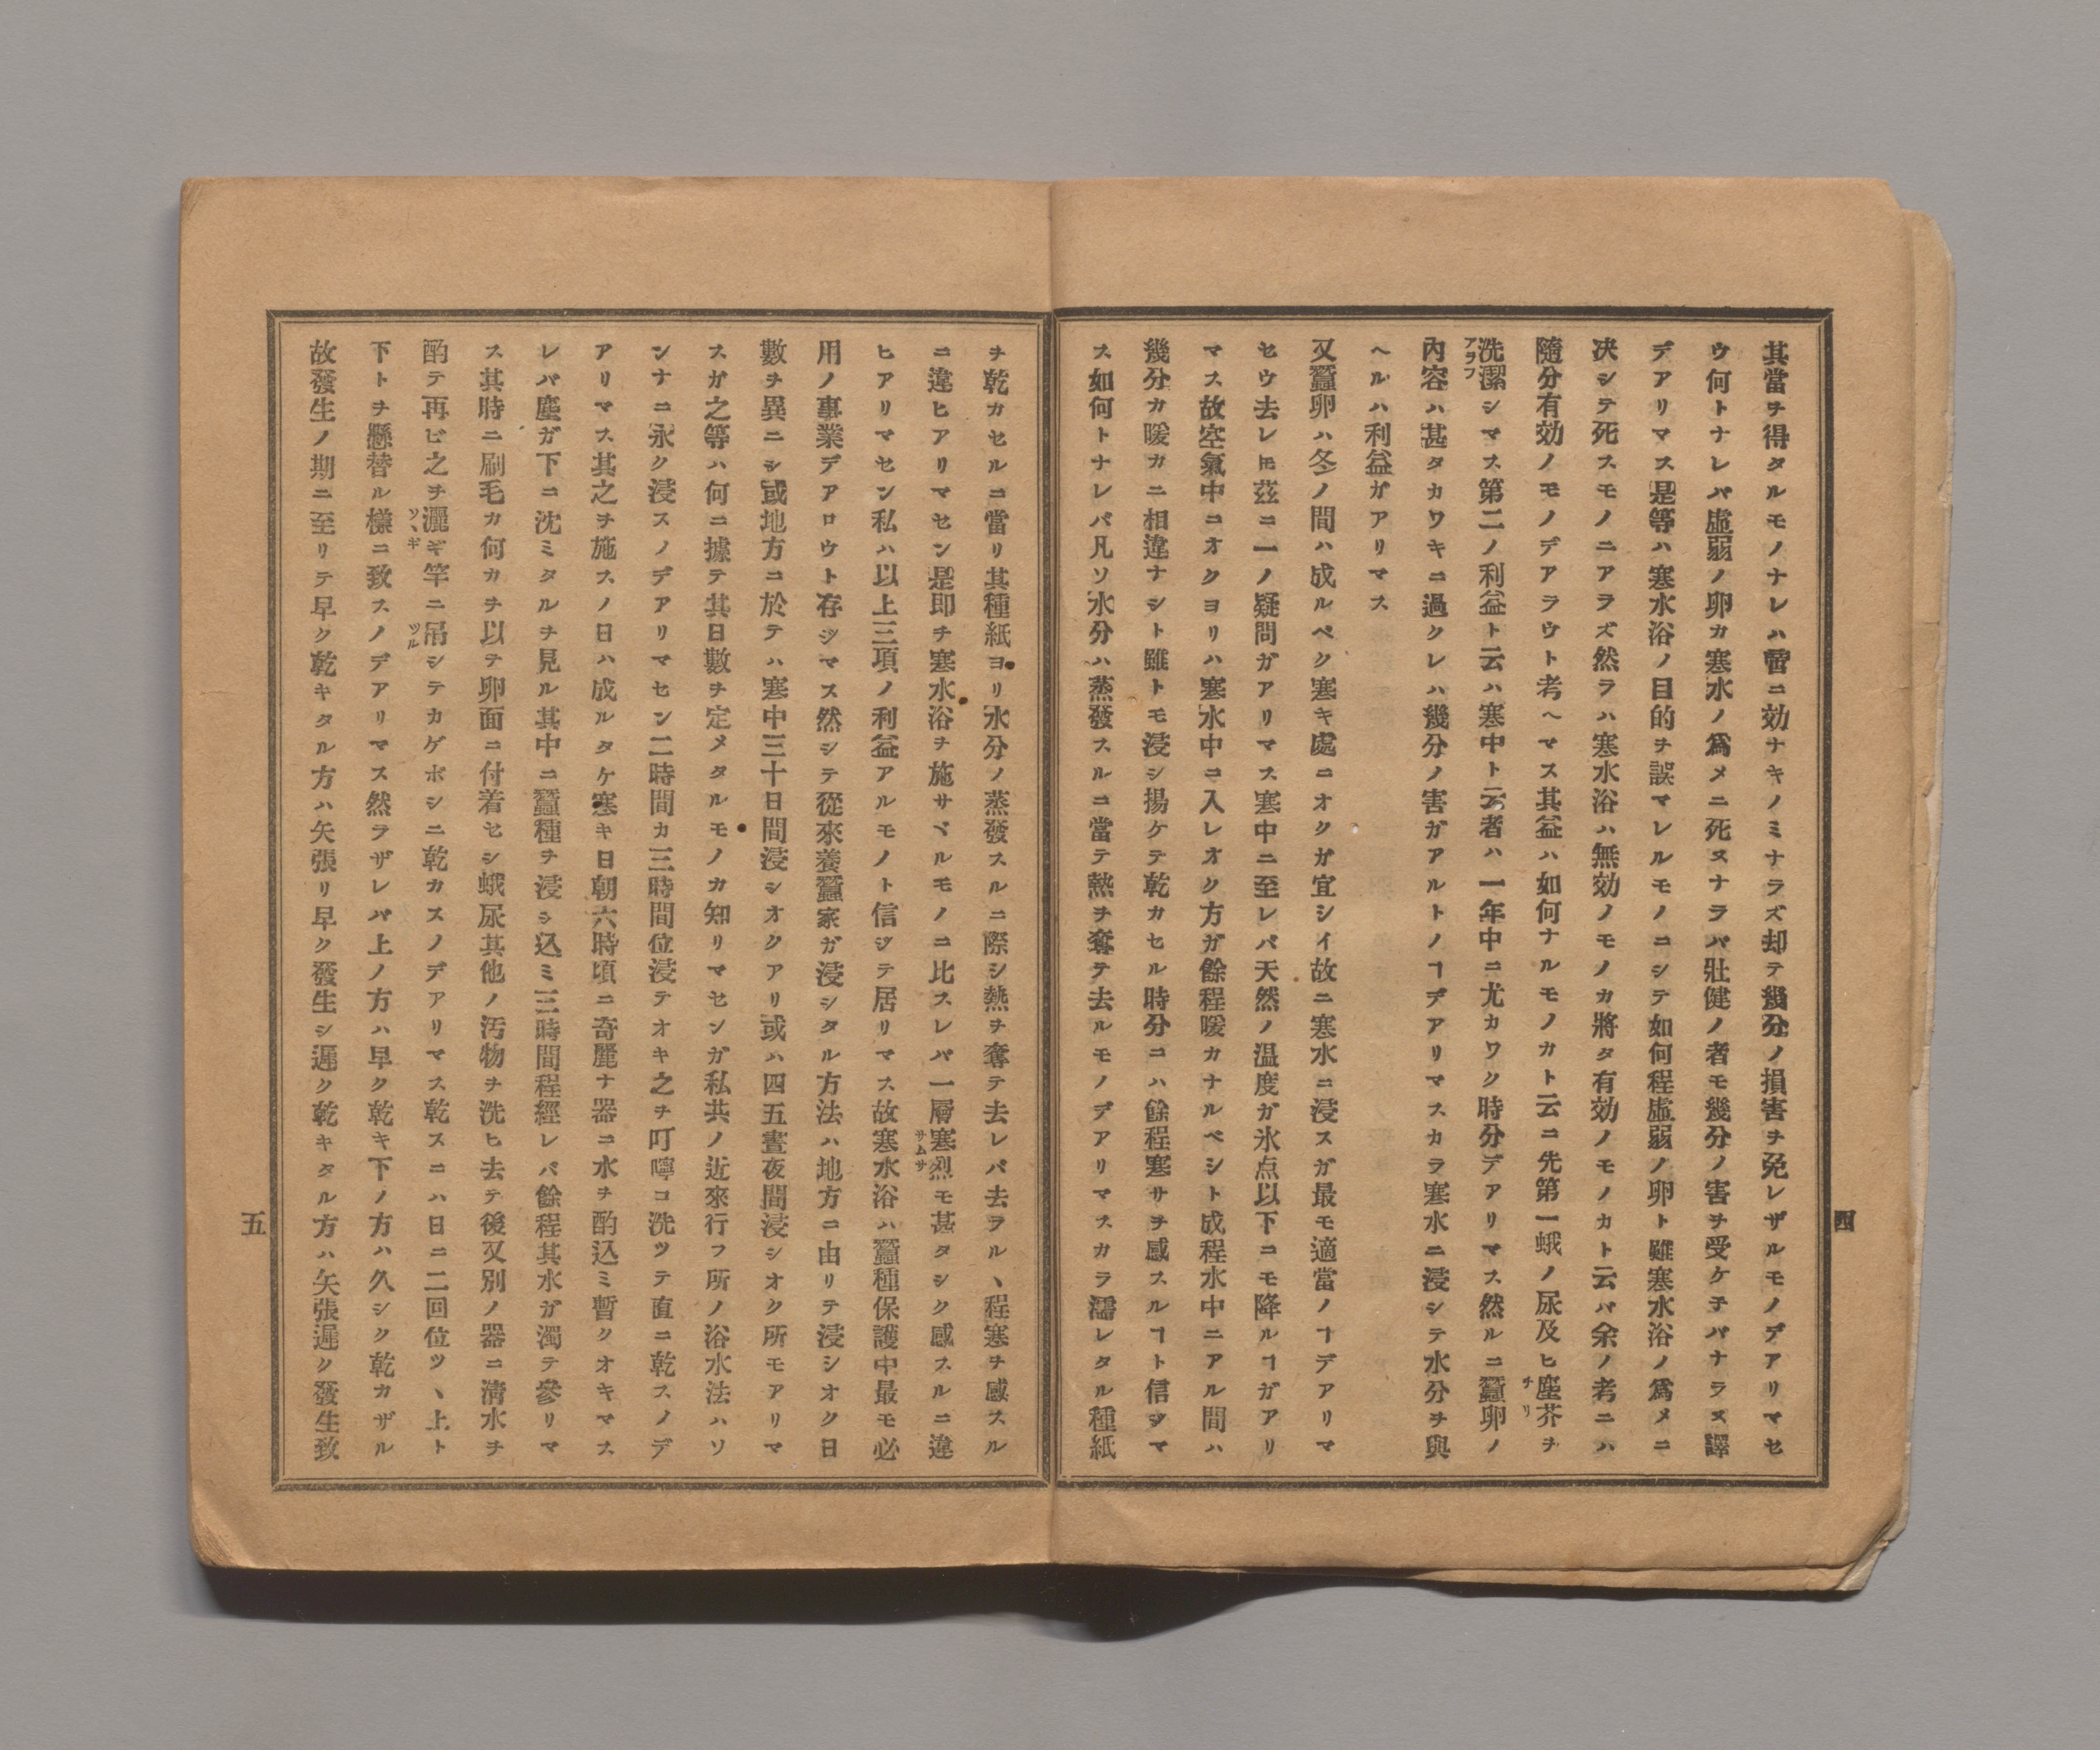 四
其當ヲ得タルモノナレハ啻ニ効ナキノミナラズ却テ幾分ノ損害ヲ免レザルモノデアリマセ
ウ何トナレバ虛弱ノ卵カ寒水ノ爲メニ死ヌナラバ壯健ノ者モ幾分ノ害ヲ受ケチバナラヌ譯
デアリマス是等ハ寒水浴ノ目的ヲ誤マレルモノニシテ如何程虛弱ノ卵ト雖寒水浴ノ爲メニ
决シテ死スモノニアラズ然ラハ寒水浴ハ無効ノモノカ將タ有効ノモノカト云バ余ノ考ニハ
隨分有効ノモノデアラウト考ヘマス其益ハ如何ナルモノカト云ニ先第一蛾ノ尿及ヒ塵芥チリヲ
洗潔アラフシマス第二ノ利益ト云ハ寒中ト云者ハ一年中ニ尤カワク時分デアリマス然ルニ蠶卵ノ
內容ハ甚タカワキニ過クレハ幾分ノ害ガアルトノヿデアリマスカラ寒水ニ浸シテ水分ヲ與
ヘルハ利益ガアリマス
又蠶卵ハ冬ノ間ハ成ルベク寒キ處ニオクガ宜シイ故ニ寒水ニ浸スガ最モ適當ノヿデアリマ
セウ去レㇳモ茲ニ一ノ疑問ガアリマス寒中ニ至レバ天然ノ温度ガ氷点以下ニモ降ルヿガアリ
マス故空氣中ニオクヨリハ寒水中ニ入レオク方ガ餘程暖カナルベシト成程水中ニアル間ハ
幾分カ暖カニ相違ナシト雖トモ浸シ揚ケテ乾カセル時分ニハ餘程寒サヲ感スルヿト信ジマ
ス如何トナレバ凡ソ水分ハ蒸發スルニ當テ熱ヲ奪テ去ルモノデアリマスカラ濡レタル種紙
ヲ乾カセルニ當リ其種紙ヨリ水分ノ蒸發スルニ際シ熱ヲ奪テ去レバ去ラルヽ程寒ヲ感スル
ニ違ヒアリマセン是即チ寒水浴ヲ施サヾルモノニ比スレバ一層寒烈サムサモ甚タシク感スルニ違
ヒアリマセン私ハ以上三項ノ利益アルモノト信ジテ居リマス故寒水浴ハ蠶種保護中最モ必
用ノ事業デアロウト存ジマス然シテ從來養蠶家ガ浸シタル方法ハ地方ニ由リテ浸シオク日
數ヲ異ニシ或地方ニ於テハ寒中三十日間浸シオクアリ或ハ四五晝夜間浸シオク所モアリマ
スガ之等ハ何ニ據テ其日數ヲ定メタルモノカ知リマセンガ私共ノ近來行フ所ノ浴水法ハソ
ンナニ永ク浸スノデアリマセン二時間カ三時間位浸テオキ之ヲ叮嚀コ洗ツテ直ニ乾スノデ
アリマス其之ヲ施スノ日ハ成ルタケ寒キ日朝六時頃ニ奇麗ナ器ニ水ヲ酌込ミ暫クオキマス
レバ塵ガ下ニ沈ミタルヲ見ル其中ニ蠶種ヲ浸シ込ミ三時間程經レバ餘程其水ガ濁テ參リマ
ス其時ニ刷毛カ何カヲ以テ卵面ニ付着セシ蛾尿其他ノ汚物ヲ洗ヒ去テ後又別ノ器ニ清水ヲ
酌テ再ビ之ヲ灑ソヽギギ竿ニ吊ツルシテカゲボシニ乾カスノデアリマス乾スニハ日ニ二回位ツヽ上ト
下トヲ懸替ル樣ニ致スノデアリマス然ラザレバ上ノ方ハ早ク乾キ下ノ方ハ久シク乾カザル
故發生ノ期ニ至リテ早ク乾キタル方ハ矢張リ早ク發生シ遲ク乾キタル方ハ矢張遲ク發生致
五